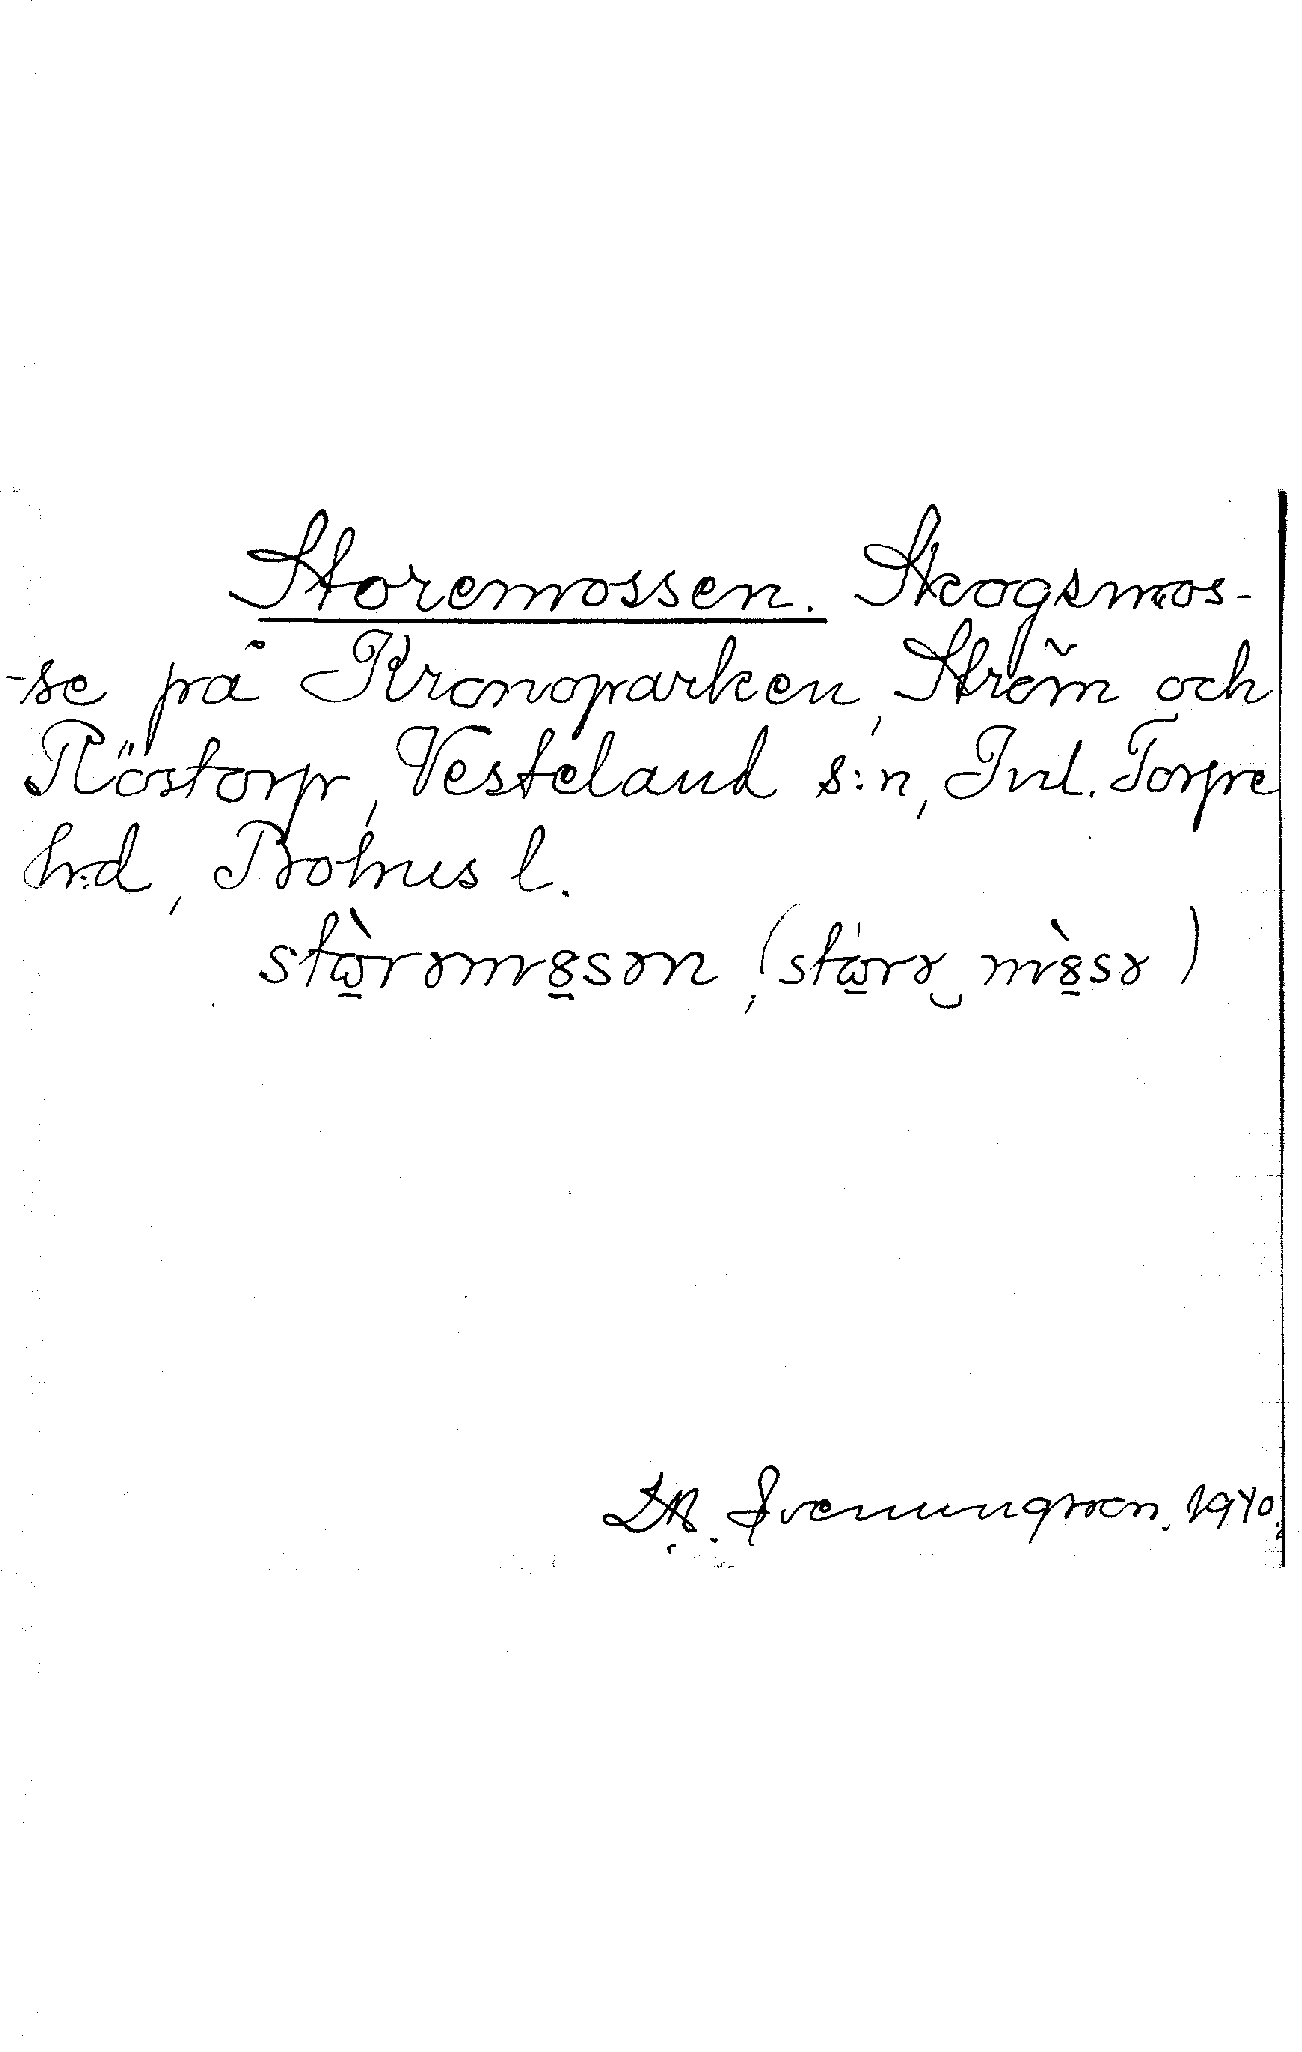 Storemossen. Skogsmos-
-se på Kronoparken, Ström och
Röstorp, Vesteland s:n, Inl. Torpe
h:d, Bohus l.
stὼrəm8sən, (stὼrə m8̀sə)
Svenungson. 1940.